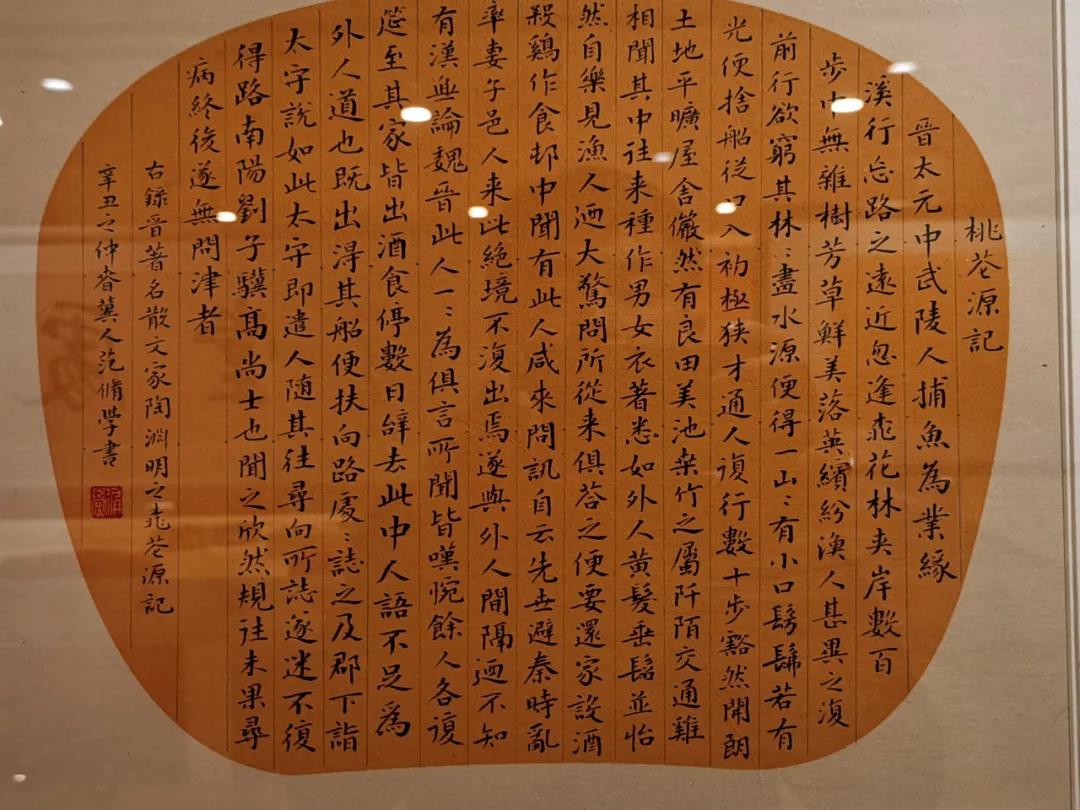 桃苍源記
晉太元中武陵人捕魚為業緣
溪行忘路之遠近忽逢桃花林夾岸數百
步中無雜樹芳草鮮美落英繽紛漁人甚異之復
前行欲窮其林〻盡水源便得一山〻有小口髣髴若有
光便捨船從口入初極狹才通人復行數十步豁然開朗
土地平曠屋舍儼然有良田美池桒竹之屬阡陌交通雞
相聞其中往来種作男女衣著悉如外人黃髮垂髫並怡
然自樂見漁人迺大驚問所從来俱荅之便要還家設酒
殺鷄作食邨中聞有此人咸來問訊自云先世避秦時亂
率妻子邑人来此絕境不復出焉遂與外人間隔迺不知
有漢無論魏晉此人一〻為俱言所聞皆嘆惋餘人各復
延至其家皆出酒食停數日辭去此中人語不足為
外人道也既出得其船便扶向路處〻誌之及郡下詣
太守說如此太守即遣人隨其往尋向所誌遂迷不復
得路南陽劉子驥髙尚士也聞之欣然規往未果尋
病終後遂無問津者
右錄晉著名散文家陶淵明之桃苍源記
辛丑之仲春冀人范脩学書